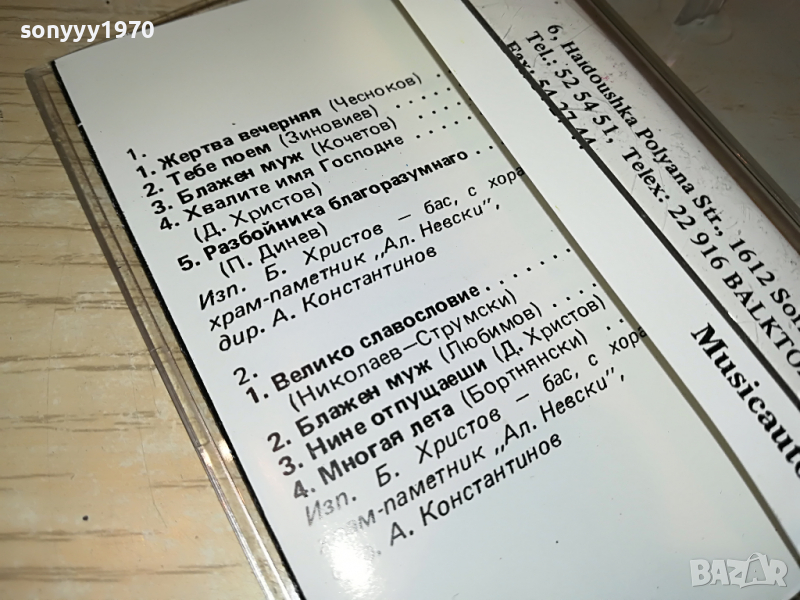 sonyyy1970
1.
1. Жертва вечерняя (Чесноков)
2. Тебе поем (Зиновиев) . . . . . . .
3. Блажен муж (Кочетов) . . . . . .
4. Хвалите имя Господне . . . . .
(Д. Христов)
5. Разбойника благоразумнаго . . .
(П. Динев)
Изп. Б. Христов – бас, с хора
храм-паметник „Ал. Невски",
дир. А. Константинов
2.
1. Велико славословие . . . . . . .
(Николаев–Струмски)
2. Блажен муж (Любимов) . . . .
3. Нине отпущаеши (Д. Христов)
4. Многая лета (Бортнянски) . .
Изп. Б. Христов – бас, с хора
храм-паметник „Ал. Невски",
А. Константинов
6, Haidoushka Polyana Str., 1612
Tel.: 52 54 51, Telex: 22 916
Fax: 54 27 44
BAZAR